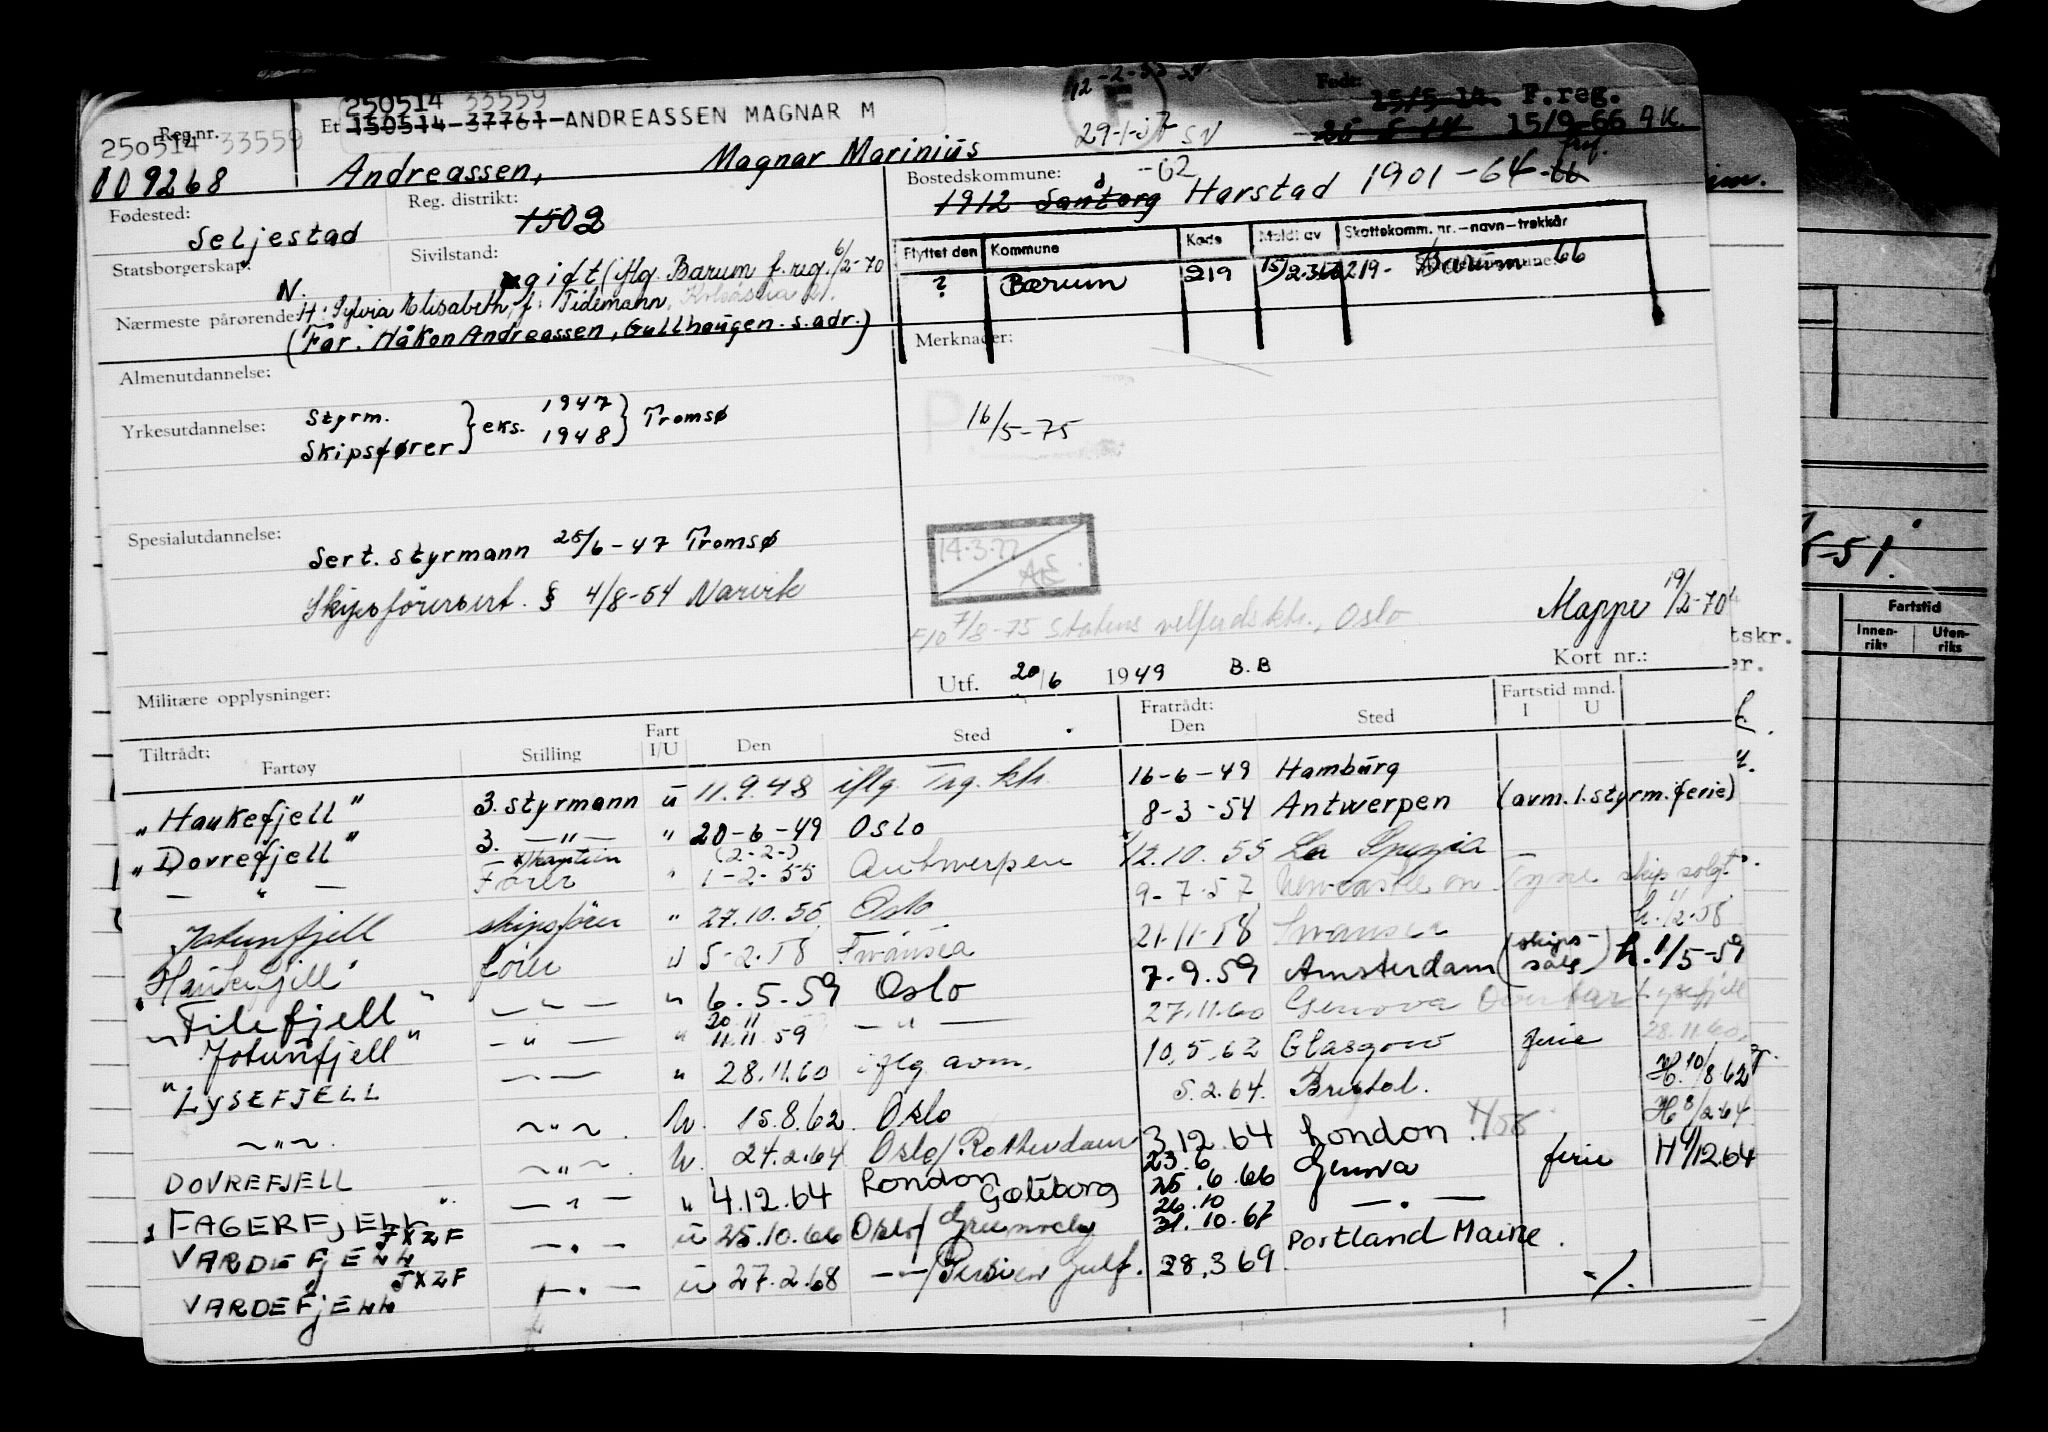 250514 33559
Et 150514-37761- ANDREASSEN MAGNAR M
Reg.nr.
250514 33559
109268
Andreassen, Magnar Marinius
12-2-55 SN
29-1-57 SN
Født:
15/5-14. F.reg.
25-5-14 15/9-66 AK.
Fødested:
Seljestad
Reg. distrikt:
1502
Bostedskommune: -62
1912 Sandtorg Harstad 1901-64-66
Statsborgerskap:
N.
Sivilstand:
gift (iflg. Bærum f.reg. 6/2-70
Flyttet den Kommune Kode Meldt av Skattekomm. nr.-navn-trekkår
? Bærum 219 219- Bærum-66
Nærmeste pårørende:
H: Sylvia Elisabeth, f: Tidemann,
(Far: Håkon Andreassen, Gullhaugen. s.adr.)
Merknader:
Almenutdannelse:
Yrkesutdannelse:
Styrm. } eks. 1947 } Tromsø
Skipsfører 1948
16/5-75
Spesialutdannelse:
Sert. styrmann 25/6-47 Tromsø
Skipsförersert. § 4/8-54 Narvik
14.3.77
AE
7/8-75 Statens velferdsktr., Oslo
Mappe 19/2-70
Militære opplysninger:
Utf. 20/6 1949 B.B
Kort nr.:
Tiltrådt:
Fartøy Stilling Fart I/U Den Sted
Fratrådt:
Den Sted Fartstid mnd. I U
"Haukefjell" 3. styrmann u 11.9.48 iflg. Trg. ktr. 16-6-49 Hamburg
"Dovrefjell" 3. —"— " 20-6-49 Oslo 8-3-54 Antwerpen (avm. 1. styrm. ferie)
— " — Fører " 1-2-55 (2-2-) Antwerpen 12.10.55 La Spezia
Jotunfjell skipsfører " 27.10.55 Oslo 9-7-57 Newcastle on Tyne skip solgt.
"Haukefjell" fører u 5-2-58 Swansea 21-11-58 Swansea
"Filefjell" —"— " 6.5.59 Oslo 7.9.59 Amsterdam (skips-salg) h. 1/5-59
"Jotunfjell" —"— " 20.11 11.11.59 —"— 27.11.60 Genova Overført Lysefjell 28.11.60
"LYSEFJELL —"— " 28.11.60 iflg avm. 10.5.62 Glasgow ferie H. 10/8 62
~"~. ~"~. U. 15.8.62. Oslo 5.2.64. Bristol. H 8/2-64
DOVREFJELL ~"~. U. 24.2.64 Oslo/Rotterdam 3.12.64 London
FAGERFJELL —"— " 4.12.64 London Gøteborg 23.6 25.6.66 Genova ferie H 1/12 64
VARDEFJELL JXZF —"— u 25.10.66 Oslo/ 26.10 31.10.67 —"—
VARDEFJELL JXZF —"— u 27.2.68 —"—/Persien Gulf. 28.3 69 Portland Maine.
-/.
5-51.
Fartstid
Innen-riks Uten-riks